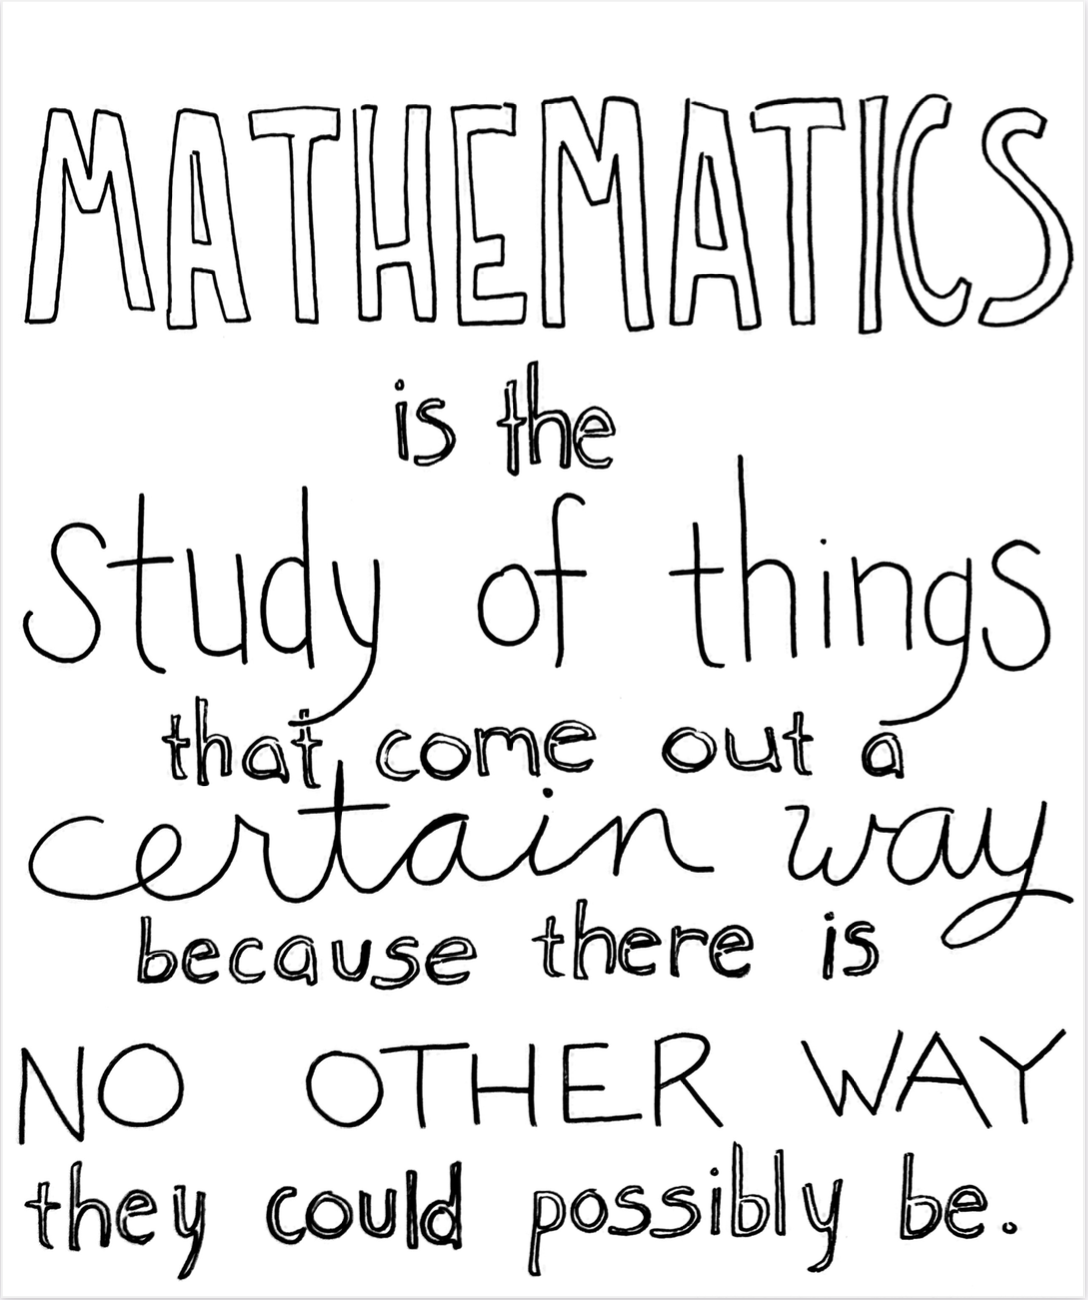 MATHEMATICS
is the
study of things
that come out a
certain way
because there is
NO OTHER WAY
they could possibly be.